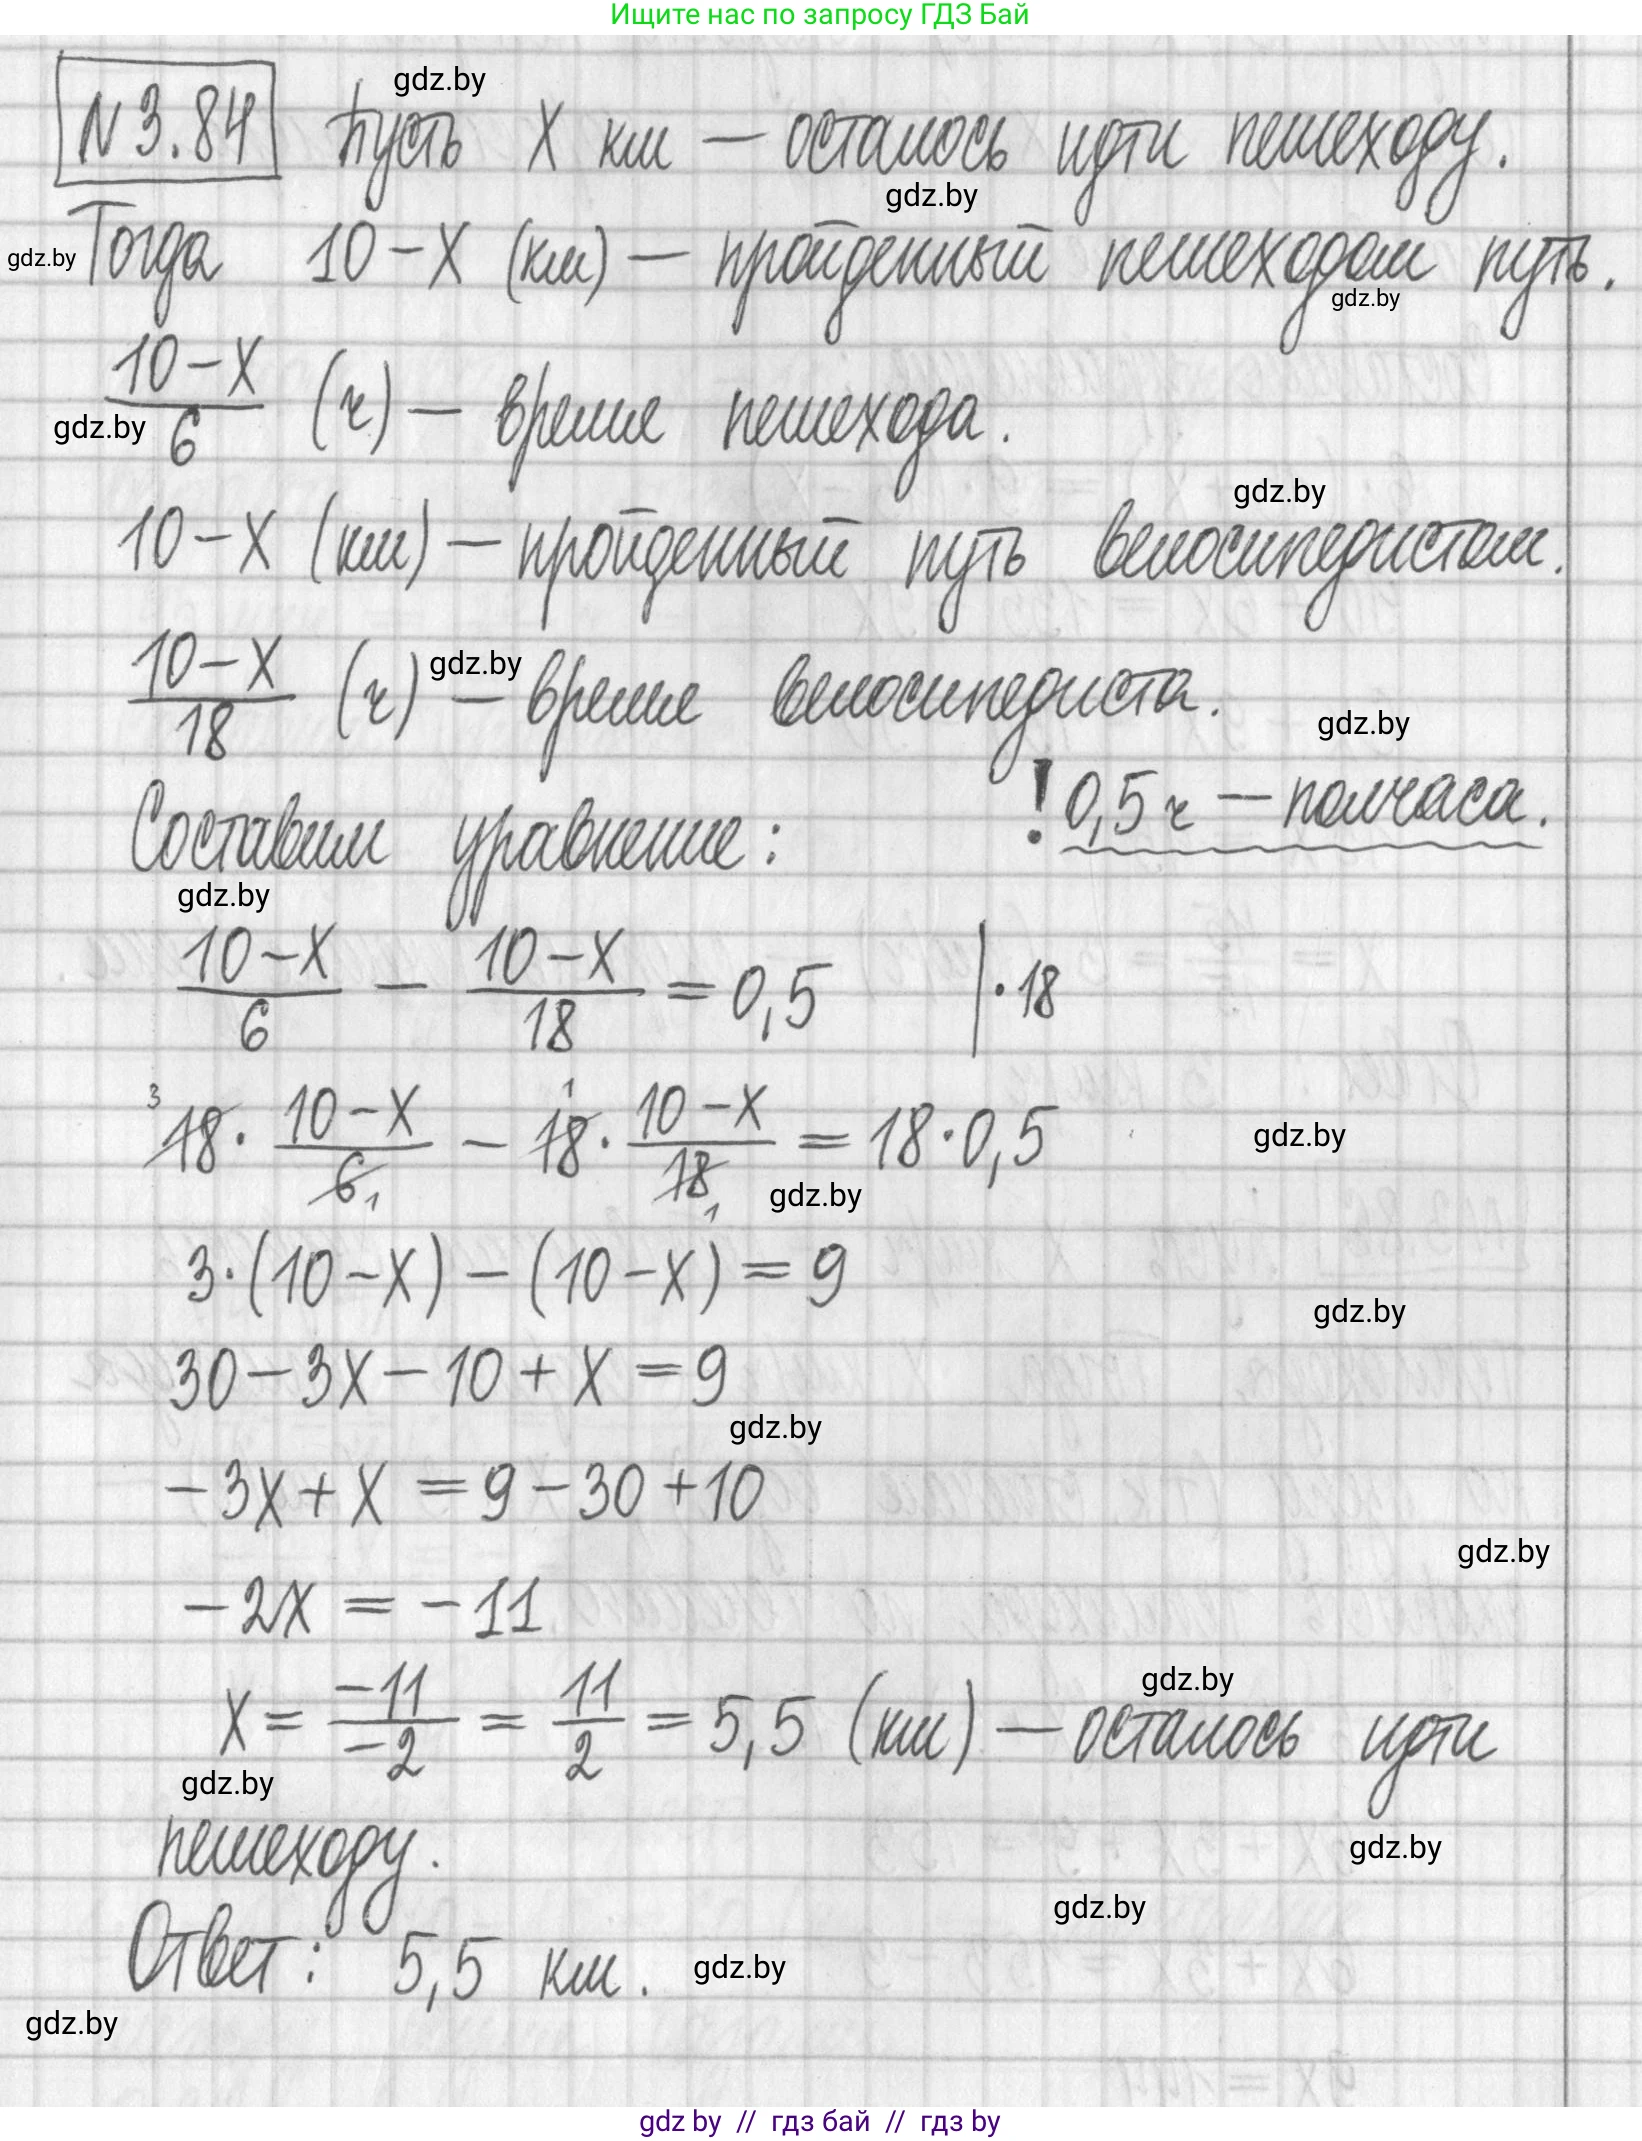 Ищите нас по запросу ГДЗ Бай
gdz.by
N 3.84 Пусть X км – осталось идти пешеходу.
gdz.by
gdz.by Тогда 10-X (км) – пройденный пешеходом путь.
gdz.by
10-X/6 (ч) – время пешехода.
gdz.by
gdz.by
10-X (км) – пройденный путь велосипедистом.
10-X/18 (ч) – время велосипедиста.
gdz.by
gdz.by
Составим уравнение: ! 0,5 ч – полчаса.
gdz.by
10-X/6 - 10-X/18 = 0,5 | · 18
3 18 · 10-X/6 1 - 1 18 · 10-X/18 1 = 18 · 0,5
gdz.by
gdz.by
3·(10-X)-(10-X)=9
gdz.by
30-3X-10+X=9
gdz.by
-3X+X=9-30+10
gdz.by
-2X=-11
gdz.by
X = -11/-2 = 11/2 = 5,5 (км) – осталось идти
gdz.by
пешеходу.
gdz.by
gdz.by
Ответ: 5,5 км.
gdz.by
gdz.by
gdz by // гдз бай // гдз by